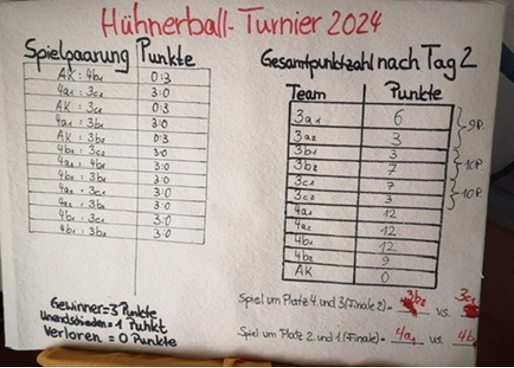 Hühnerball-Turnier 2024
Spielpaarung Punkte
AK : 4b₁ 0:3
4a₁ : 3c₂ 3:0
AK : 3c₁ 0:3
4a₁ : 3b₂ 3:0
AK : 3b₂ 0:3
4b₂ : 3c₂ 3:0
4a₂ : 4b₂ 3:0
4b₂ : 3b₁ 3:0
4a₂ : 3c₁ 3:0
4a₂ : 3b₁ 3:0
4b₁ : 3c₁ 3:0
4b₁ : 3b₂ 3:0
Gewinner = 3 Punkte
Unentschieden = 1 Punkt
Verloren = 0 Punkte
Gesamtpunktzahl nach Tag 2
Team Punkte
3a₁ 6
3a₂ 3
3b₁ 3
3b₂ 7
3c₁ 7
3c₂ 3
4a₁ 12
4a₂ 12
4b₁ 12
4b₂ 9
AK 0
9P.
10P.
10P.
Spiel um Platz 4. und 3 (Finale 2) = 3b₂ vs. 3c₁
Spiel um Platz 2 und 1 (Finale) = 4a₁ vs. 4b₁